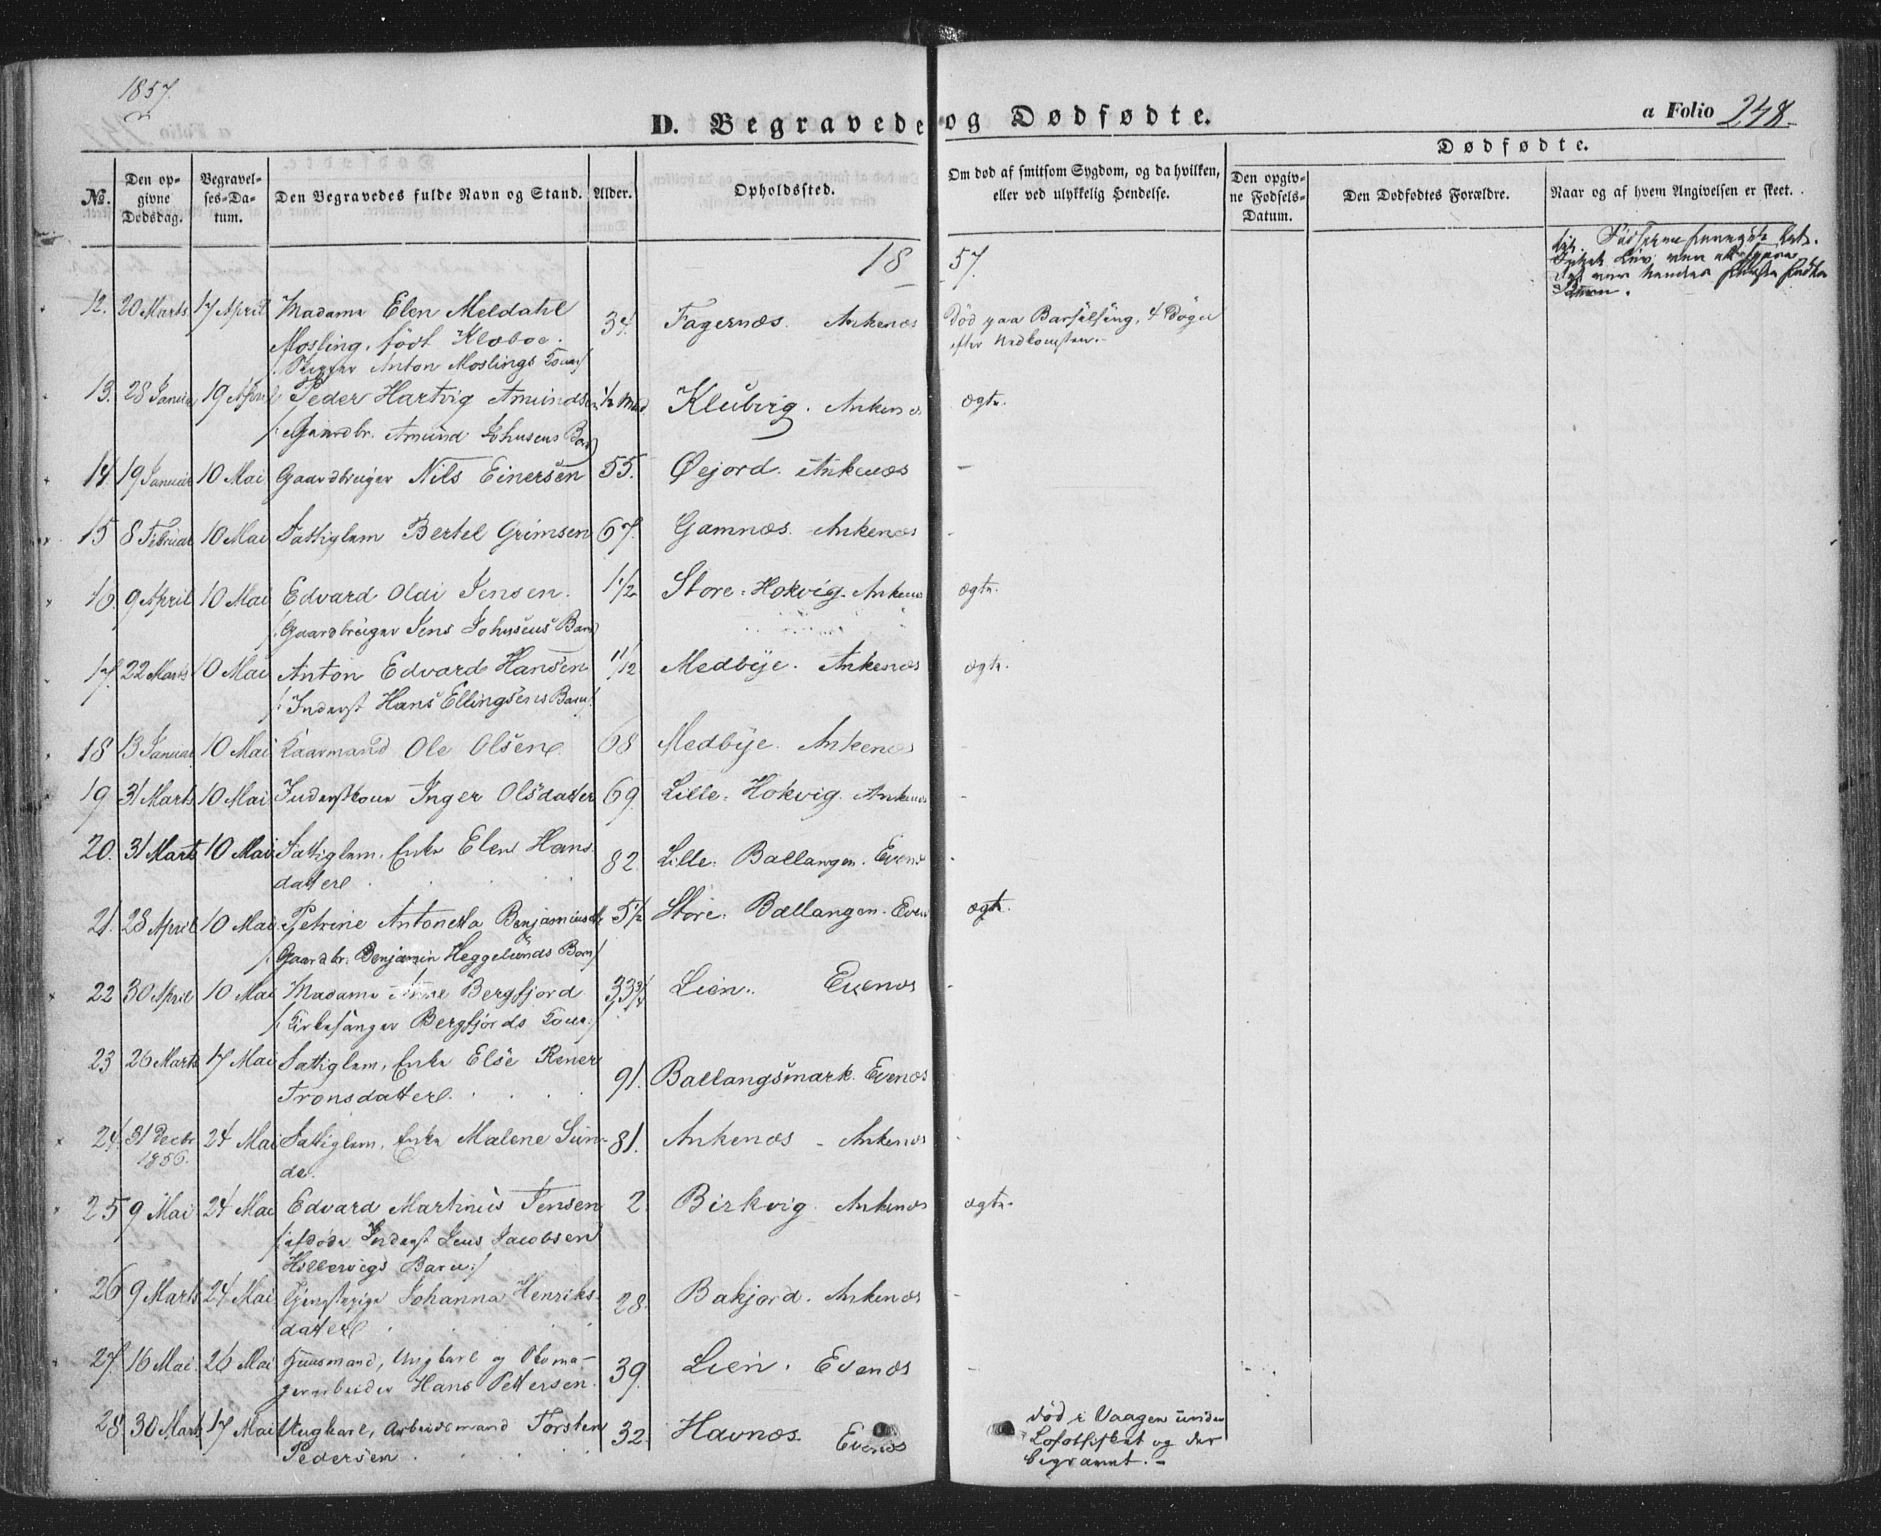 1857.
D. Begravede og Dødfødte.
a Folio 248.
Dødfødte.
No.
Den opgivne Dødsdag.
Begravelses-Datum.
Den Begravedes fulde Navn og Stand.
Alder.
Opholdssted.
Om død af smitsom Sygdom, og da hvilken, eller ved ulykkelig Hendelse.
Den opgivne Fødsels-Datum.
Den Dødfødtes Forældre.
Naar og af hvem Angivelsen er skeet.
18 57.
12. 20 Marts 17 April Madame Elen Meldahl 34. Fagernæs. Ankenæs Død paa Barselsäng, 4 Døgn
Mosling, født Kloboe. efter Nedkomsten.
Anton Moslings Kone/
13. 28 Januar 19 April Peder Hartvig Amundsen 1/2 Mnd Klubvig. Ankenæs ægte.
/: Gaardbr. Amund Johnsens Barn
14. 19 Januar 10 Mai Gaardbruger Nils Einersen 55. Øejord. Ankenæs -
15 8 Februar 10 Mai Fattiglem Bertel Grimsen 67. Gamnæs. Ankenæs -
16. 9 April 10 Mai Edvard Olai Jensen. 1 1/2 Store-Hokvig. Ankenæs ægte.
/: Gaardbruger Jens Johnsens Barn
17. 22 Marts 10 Mai Anton Edvard Hansen 11/12 Medbÿe. Ankenæs ægte.
/: Inderst Hans Ellingsens Barn/
18 13 Januar 10 Mai Kaarmand Ole Olsen 68 Medbÿe. Ankenæs -
19. 31 Marts 10 Mai Inderstkone Inger Olsdatter 69. Lille-Hokvig. Ankenæs -
20. 31 Marts 10 Mai Fattiglem, Enke Elen Hans- 82 Lille-Ballangen. Evenæs -
datter
21. 28 April 10 Mai Petrine Antonetta Benjaminsdtr 5 1/2 Store-Ballangen. Evenæs ægte.
/: Gaardbr. Benjamin Heggelunds Barn/
22 30 April 10 Mai Madame Anne Bergfjord 33 3/4 Lien. Evenæs -
/: Kirkesanger Bergfjords Kone./
23 26 Marts 17 Mai Fattiglem, Enke Else Rener 91. Ballangsmark. Evenæs
Tronsdatter.
24. 31 Decbr 1856. 24 Mai Fattiglem, Enke Malene Sun- 81. Ankenæs - Ankenæs -
de.
25 9 Mai 24 Mai Edvard Martinus Jensen 2. Birkvig. Ankenæs ægte.
/: afdøde Inderst Jens Jacobsen
Barn:/
26 9 Marts 24 Mai Tjenestepige Johanna Henriks- 28. Bakjord. Ankenæs -
datter
27. 16 Mai 26 Mai Huusmand, Ungkarl og Skoma- 39. Lien. Evenæs -
gerarbeider Hans Pettersen.
28. 30 Marts 17 Mai Ungkarl, Arbeidsmand Torsten 32. Havnæs. Evenæs død i Vaagen under
Pedersen. Lofotfisket og der
begravet. -